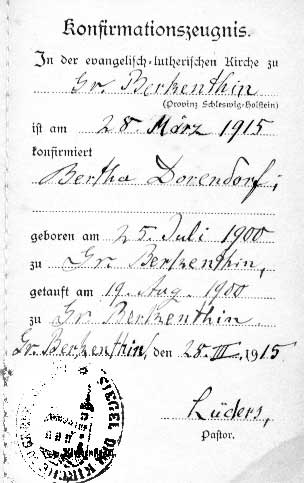 Konfirmationszeugnis.
In der evangelisch-lutherischen Kirche zu
Gr. Berkenthin
(Provinz Schleswig-Holstein)
ist am 28. März 1915
konfirmiert
Bertha Dorendorf,
geboren am 25. Juli 1900
zu Gr. Berkenthin,
getauft am 19. Aug. 1900
zu Gr. Berkenthin.
Gr. Berkenthin, den 28. III. 1915
Lüders,
Pastor.
SIEGEL DER KIRCHE